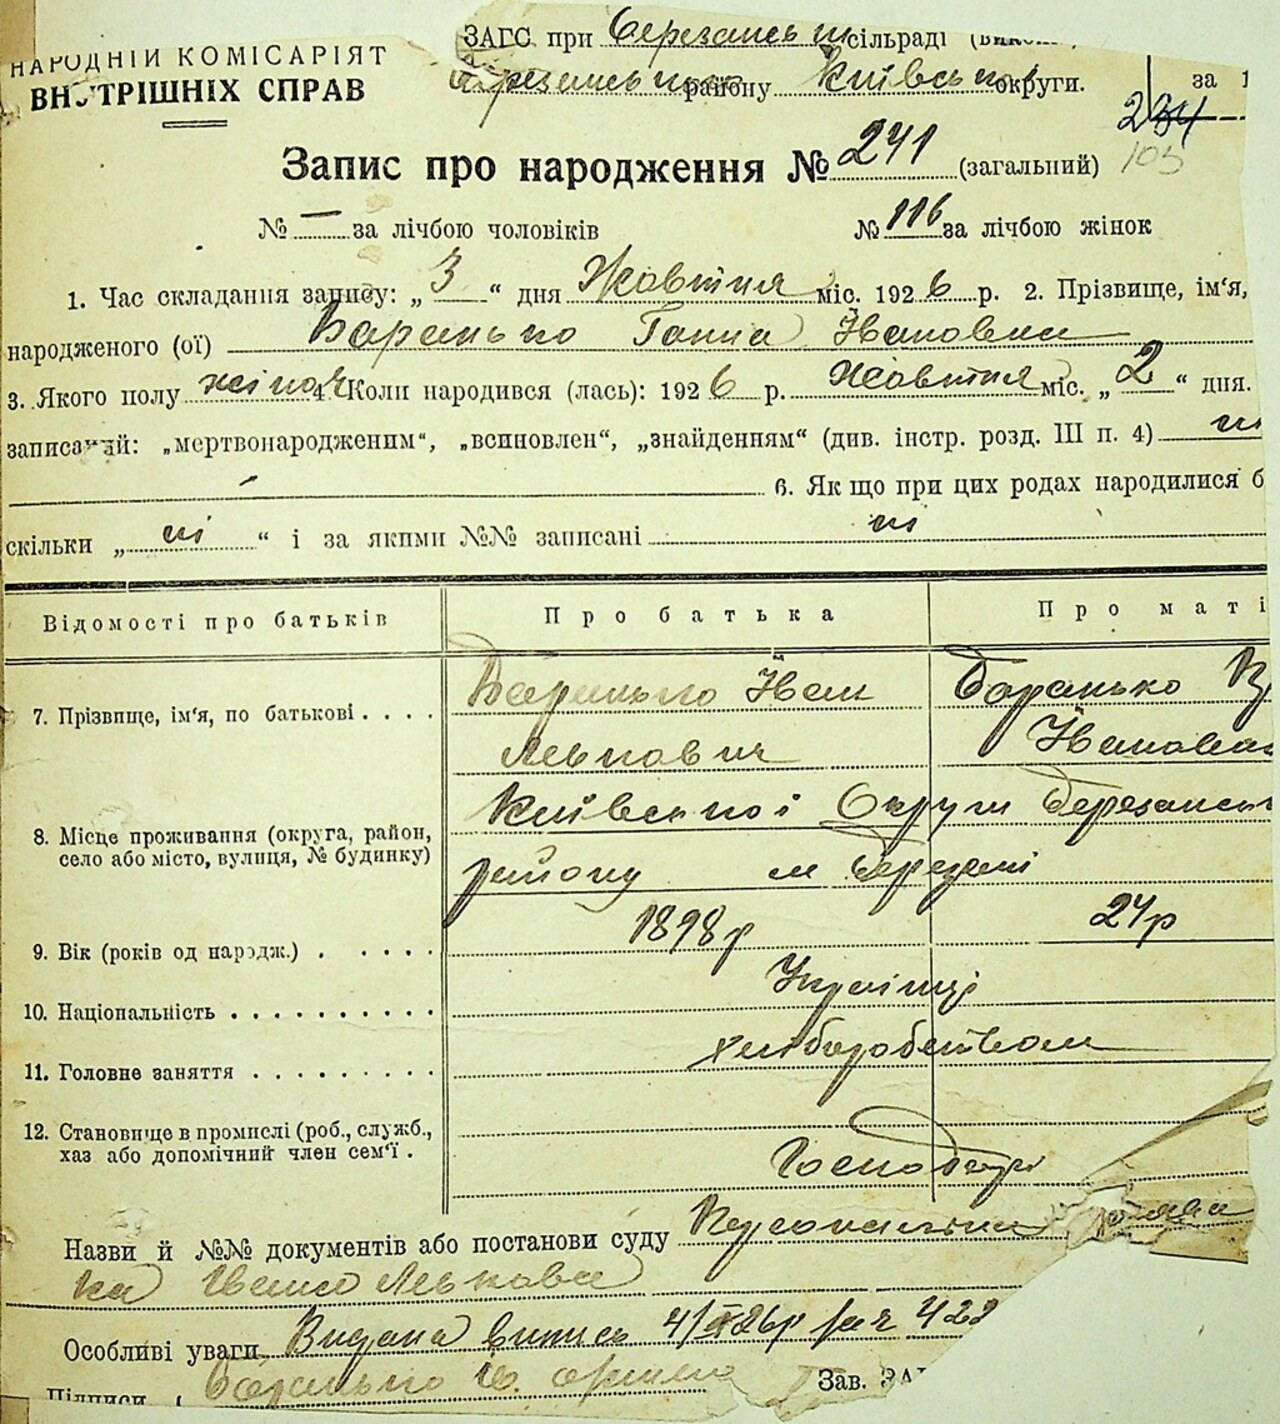 НАРОДНІЙ КОМІСАРІЯТ
ВНУТРІШНІХ СПРАВ
ЗАГС при сільраді
району Київської округи.
за 1
234
103
Запис про народження № 241 (загальний)
№ — за лічбою чоловіків № 116 за лічбою жінок
1. Час складання запису: „ 3 “ дня Жовтня міс. 1926 р. 2. Прізвище, ім'я,
народженого (ої) Баранько Ганна Івановна
3. Якого полу жіноч 4. Коли народився (лась): 1926 р. Жовтня міс. „ 2 “ дня.
записаний: „мертвонародженим“, „всиновлен“, „знайденням“ (див. інстр. розд. III п. 4) ні
6. Як що при цих родах народилися б
скільки „ ні “ і за якими №№ записані ні
Відомості про батьків Про батька Про маті
7. Прізвище, ім'я, по батькові . . . . Баранько Іван Баранько
Левкович Івановна
8. Місце проживання (округа, район, село або місто, вулиця, № будинку) Київської Округи Березанськ
району м Березані
9. Вік (років од народж.) . . . . . 1898 р 24 р
10. Національність . . . . . . . . . . Українці
11. Головне заняття . . . . . . . . . хліборобством
12. Становище в промислі (роб., служб., хаз або допомічний член сем'ї . Господарі
Назви й №№ документів або постанови суду Персональна
ка Івана Левкова
Особливі уваги. Видана випись 4/X 26р за № 422
Підписи : Баранько Ів.
Зав. ЗА